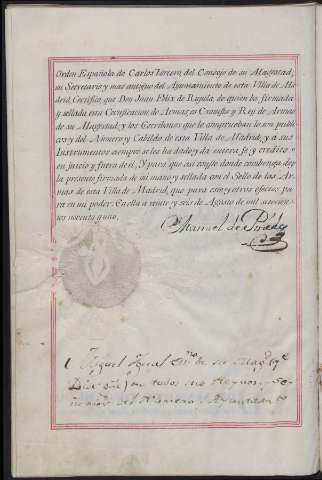 Orden Española de Carlos Tercero, del Consejo de su Magestad,
su Secretario y mas antiguo del Ayuntamiento de esta Villa de Ma-
drid, Certifico, que Don Juan Felix de Rujula, de quien va firmada
y sellada esta Certificacion de Armas, es Cronista y Rey de Armas
de su Magestad; y los Escribanos que la comprueban lo son publi-
cos y del Número y Cabildo de esta Villa de Madrid, y á sus
Instrumentos siempre se les ha dado y da entera fe y credito
en juicio y fuera de él, Y para que asi conste donde convenga doy
la presente firmada de mi mano y sellada con el Sello de las Ar-
mas de esta Villa de Madrid, que para este y otros efectos pa-
ra en mi poder. En ella á veinte y seis de Agosto de mil setecien-
tos noventa y uno.
Manuel de
Miguel
en todos sus Reynos, y Se-
del Número, y Ayuntam.to